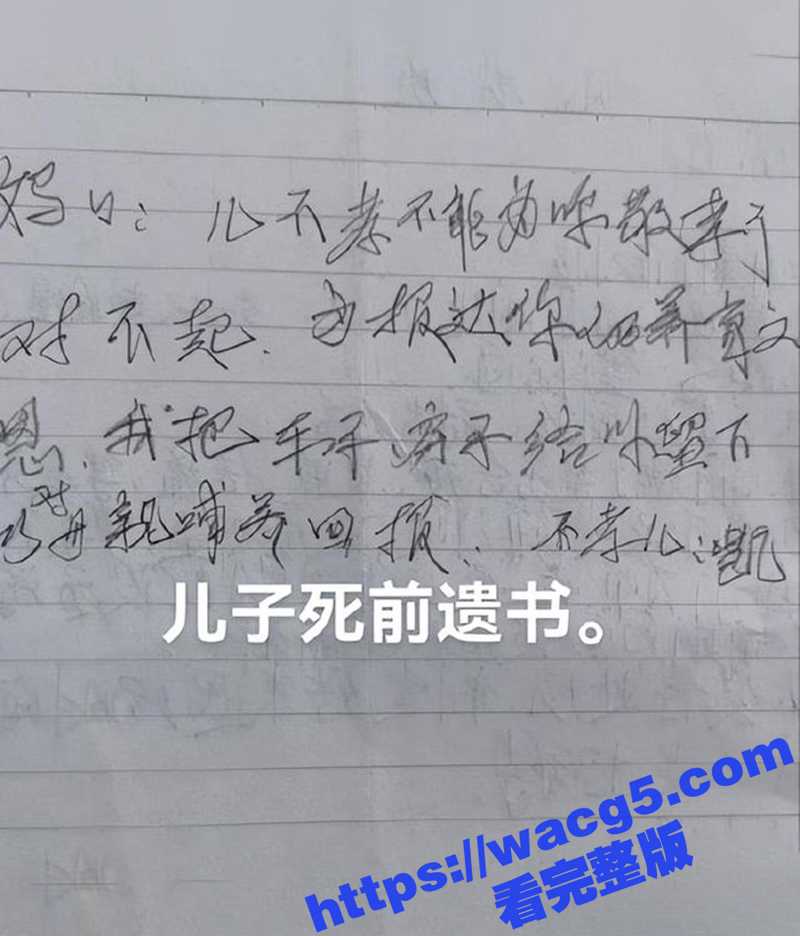 妈妈: 儿不孝不能为你敬孝了
对不起. 为报达你的养育之
恩. 我把车子、房子给你留下
对母亲哺养回报. 不孝儿:凯
儿子死前遗书。
https://wacg5.com
看完整版